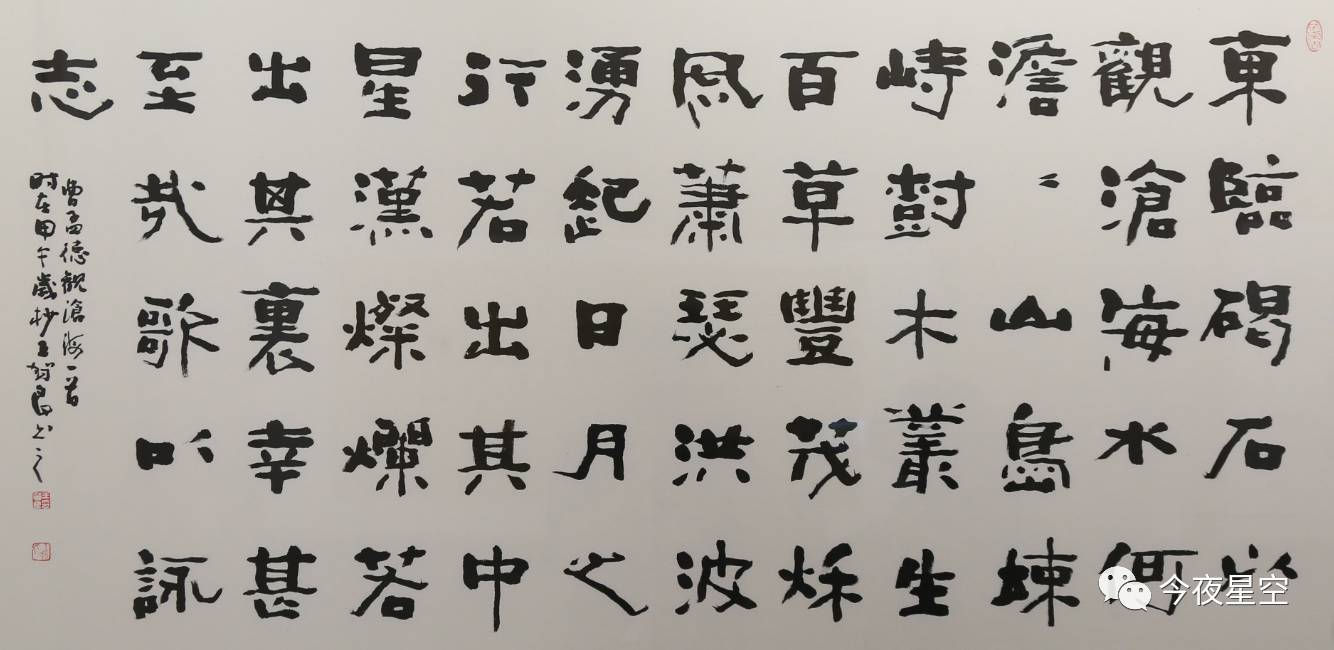 東臨碣石以
觀滄海水何
澹〻山島竦
峙樹木叢生
百草豐茂秌
風蕭瑟洪波
湧起日月之
行若出其中
星漢燦爛若
出其裏幸甚
至哉歌以詠
志
曹孟德觀滄海一首
時在甲午歲杪王賀良書之
今夜星空